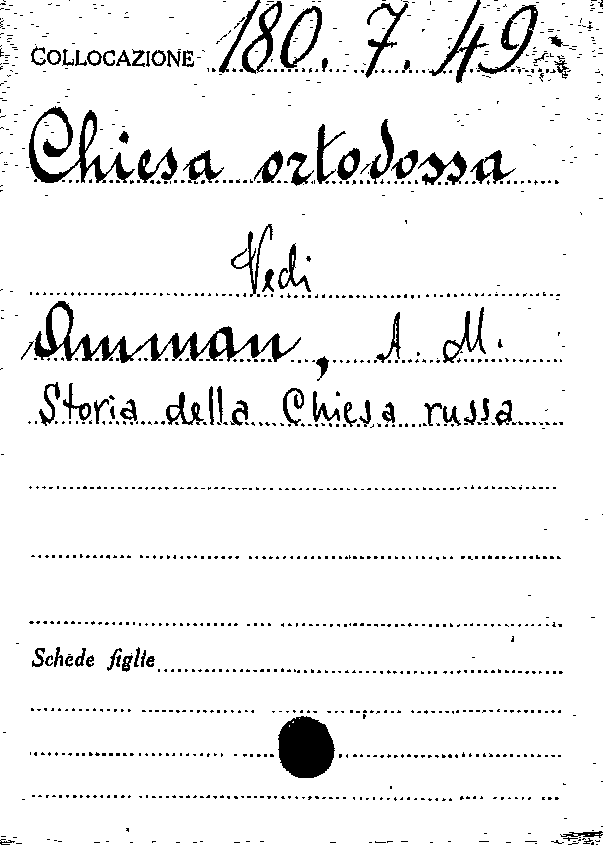 COLLOCAZIONE 180. 7. 49
Chiesa ortodossa
Vedi
Amman, A. M.
Storia della Chiesa russa
Schede figlie